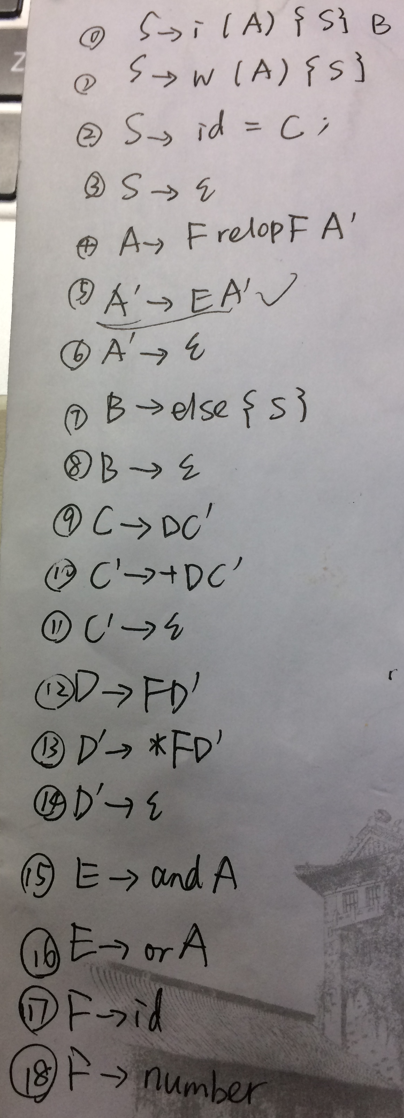 ⓪ S→i(A){S}B
① S→w(A){S}
② S→id=C;
③ S→ε
④ A→FrelopFA'
⑤ A'→EA'✓
⑥ A'→ε
⑦ B→else{S}
⑧ B→ε
⑨ C→DC'
⑩ C'→+DC'
⑪ C'→ε
⑫ D→FD'
⑬ D'→*FD'
⑭ D'→ε
⑮ E→andA
⑯ E→orA
⑰ F→id
⑱ F→number